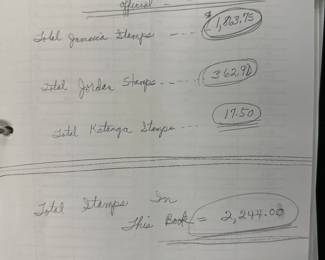 official -
Total Jamaica Stamps --- $1,863.75
Total Jordan Stamps ---- 362.90
Total Katanga Stamps --- 17.50
Total Stamps In
This Book = 2,244.00